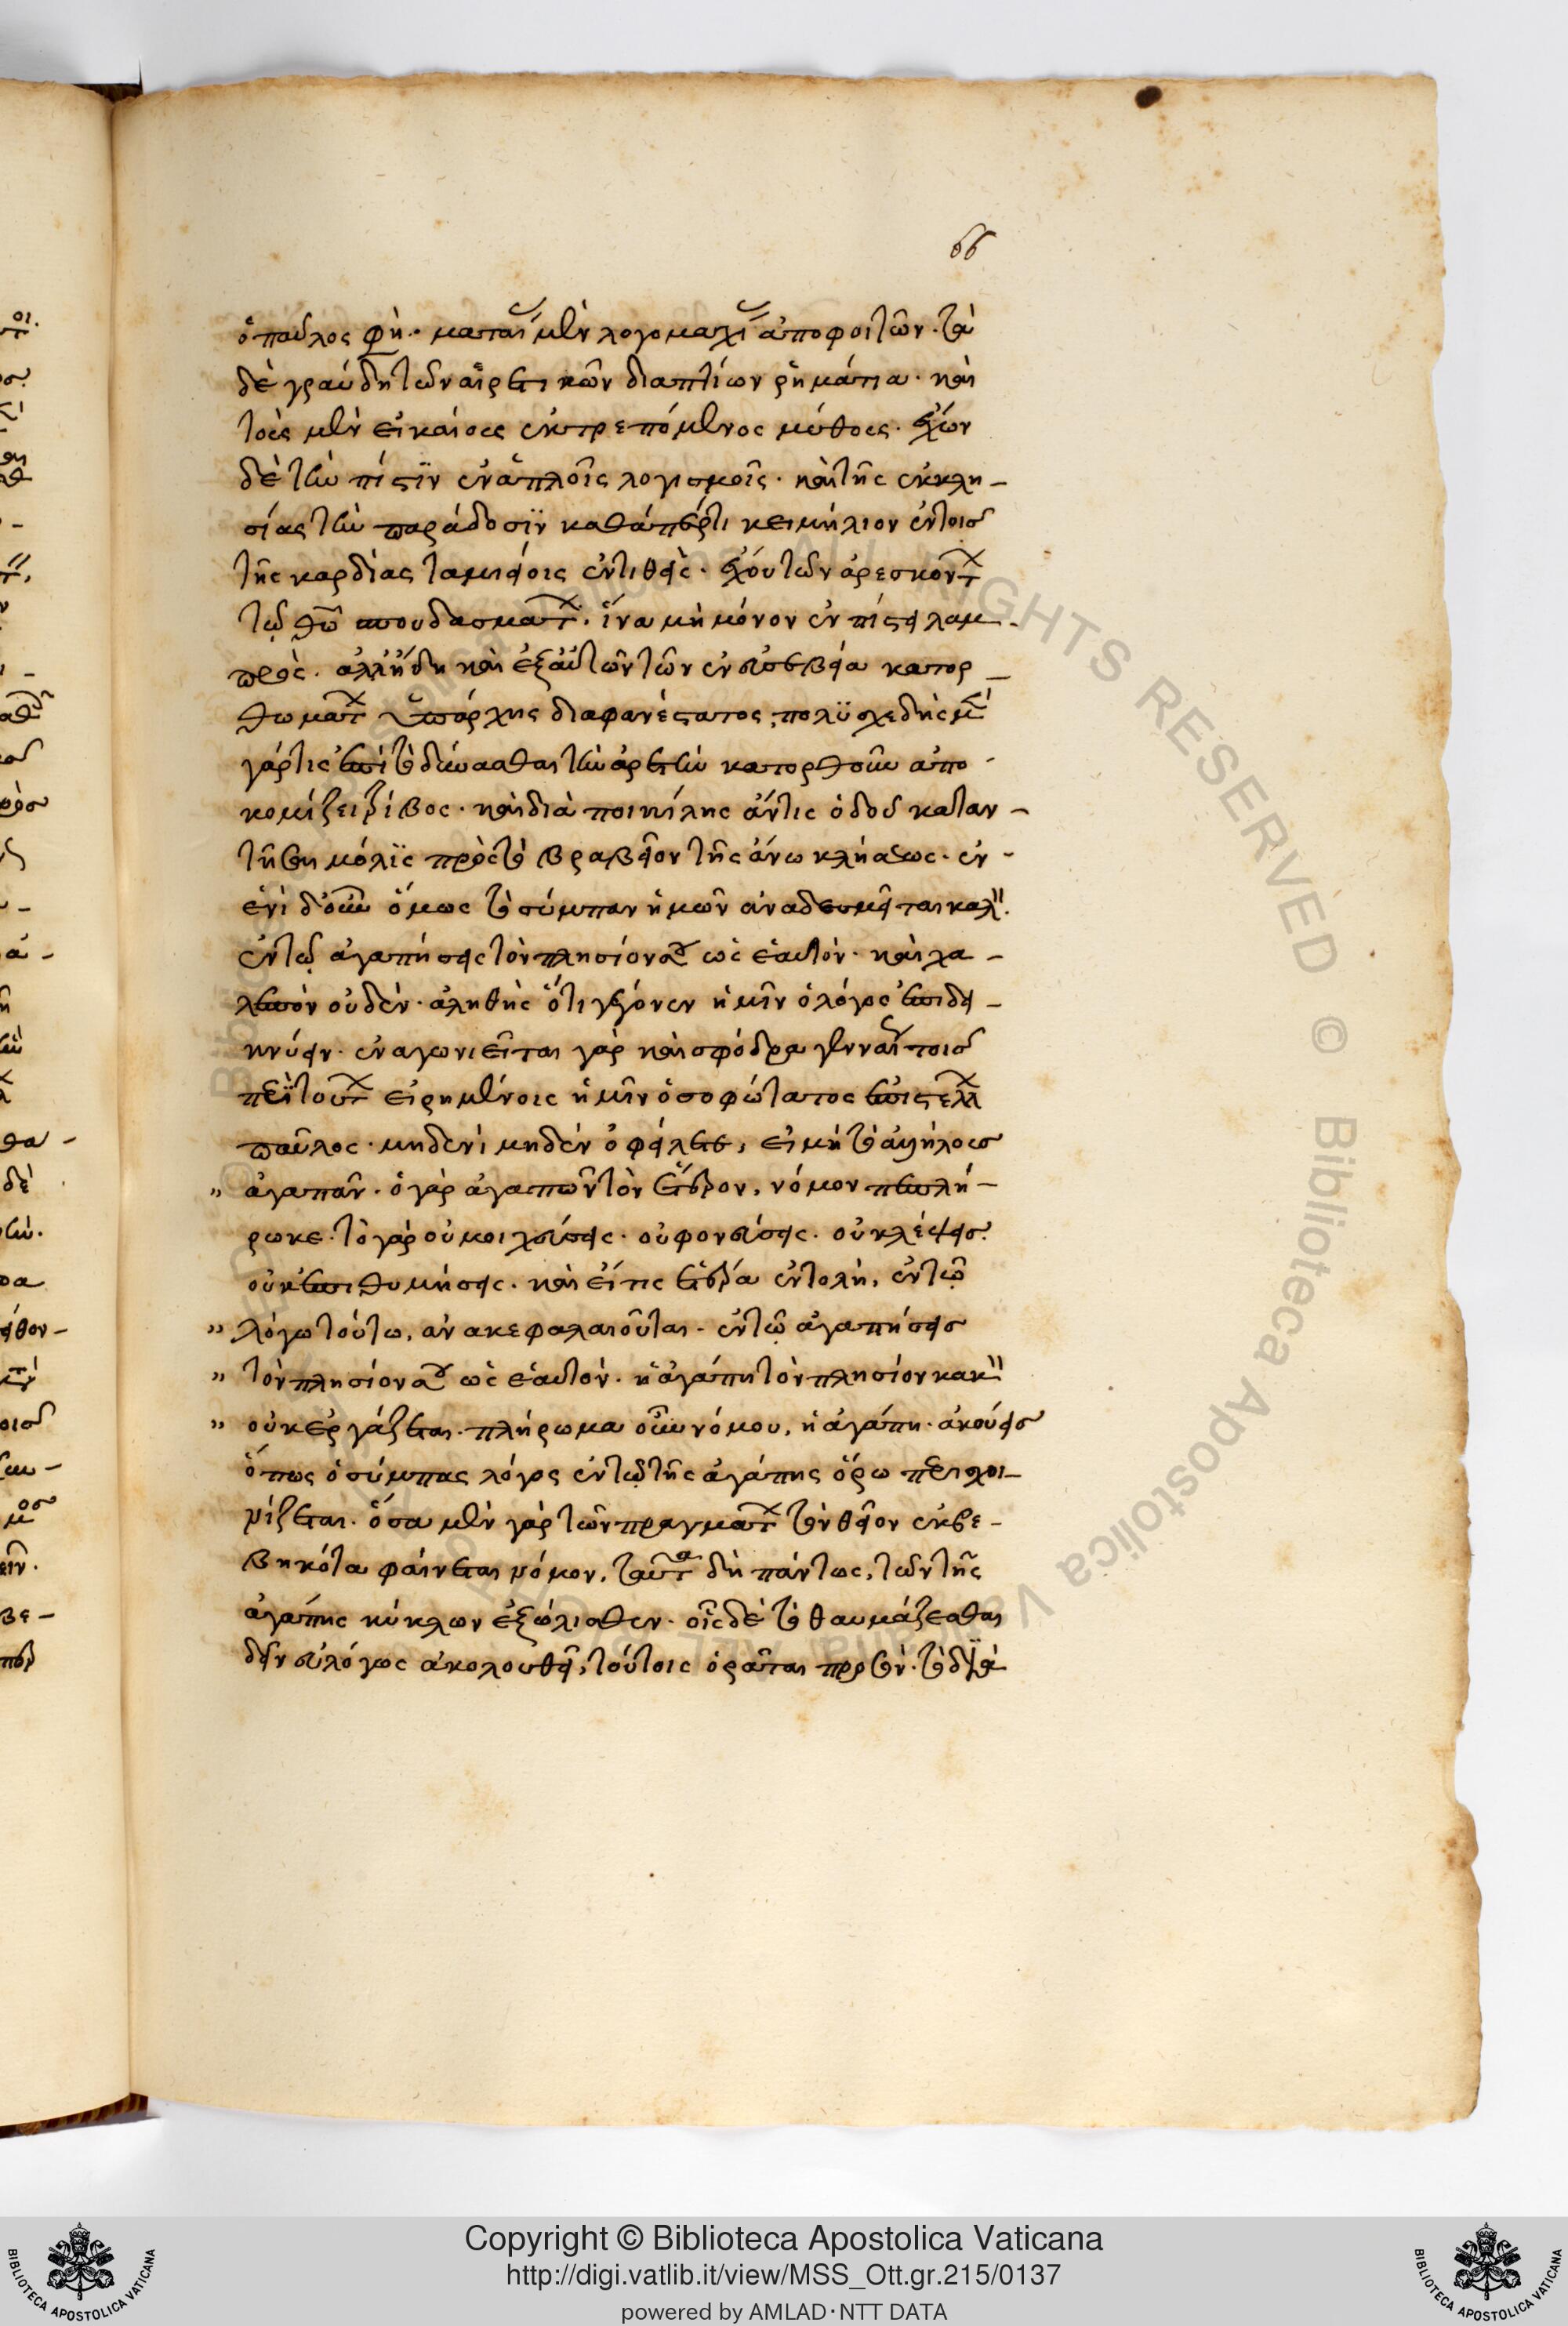 66
ὁ παῦλος φὴ· ματαί μὲν λογομαχί ἀποφοιτῶν· τὰ
δὲ γραώδη τῶν αἱρετικῶν διαπτύων ῥημάτια· καὶ
τοὺς μὲν εἰκαίους ἐκτρεπόμενος μύθους· ἔχων
δὲ τὴν πίστϊν ἐν ἁπλοῖς λογισμοῖς· καὶ τῆς ἐκκλη-
σίας τὴν παράδοσϊν καθάπέρ τι κειμήλιον ἐν τοῖς
τῆς καρδίας ταμιείοις ἐντιθεὶς· ἔχου τῶν ἀρεσκοντ
τῷ θῶ σπουδασματ· ἵνα μὴ μόνον ἐν πίστει λαμ-
πρὸς· ἀλλ' ἤδη καὶ ἐξ αὐτῶν τῶν ἐν εὐσεβεία κατορ-
θωματ ὑπάρχης διαφανέστατος, πολϋσχεδὴς μ
γάρ τις ἐπὶ τὸ δύνασθαι τὴν ἀρετὴν κατορθοῦν ἀπο-
κομίζει τρίβος· καὶ διὰ ποικίλης ἄν τις ὁδοῦ καταν-
τήση μόλϊς πρὸς τὸ βραβεῖον τῆς ἄνω κλήσεως· ἐν-
ἑνὶ δ' οὖν ὅμως τὸ σύμπαν ἡμῶν ἀναδεσμεῖται καλ·
ἐν τῷ ἀγαπήσεις τὸν πλησίον σου ὡς ἑαυτὸν· καὶ χα-
λεπὸν οὐδὲν· ἀληθὴς ὅτι γέγόνεν ἡμῖν ὁ λόγος ἐπιδει-
κνύειν· ἐναγωνιεῖται γὰρ καὶ σφόδρα γενναί τοῖς
περὶ τουτ εἰρημένοις ἡμῖν ὁ σοφώτατος ἐπιστελλ
παῦλος· μηδενὶ μηδὲν ὀφείλετε, εἰ μὴ τὸ ἀλλήλους
„ ἀγαπᾶν· ὁ γὰρ ἀγαπῶν τὸν ἕτερον, νόμον πεπλή-
ρωκε· τὸ γὰρ οὐ μοιχεύσεις· οὐ φονεύσεις· οὐ κλέψεις·
οὐκ ἐπιθυμήσεις· καὶ εἴ τις ἑτέρα ἐντολὴ, ἐν τῶ
„ λόγω τούτω, ἀνακεφαλαιοῦται· ἐν τῶ ἀγαπήσεις
„ τὸν πλησίον σου ὡς ἑαυτόν· ἡ ἀγάπη τὸν πλησίον κακ
„ οὐκ ἐργάζεται· πλήρωμα οὖν νόμου, ἡ ἀγάπη· ἀκούεις
ὅπως ὁ σύμπας λόγος ἐν τῷ τῆς ἀγάπης ὅρω περιχοι-
νίζεται· ὅσα μὲν γὰρ τῶν πραγματ τὸν θεῖον ἐκβε-
βηκότα φαίνεται νόμον, ταῦτα δὴ πάντως, τῶν τῆς
ἀγάπης κύκλων ἐξώλισθεν· οἷς δὲ τὸ θαυμάζεσθαι
δεῖν εὐλόγως ἀκολουθεῖ, τούτοις ὁρᾶται
Copyright © Biblioteca Apostolica Vaticana
http://digi.vatlib.it/view/MSS_Ott.gr.215/0137
powered by AMLAD·NTT DATA
BIBLIOTECA APOSTOLICA VATICANA
BIBLIOTECA APOSTOLICA VATICANA